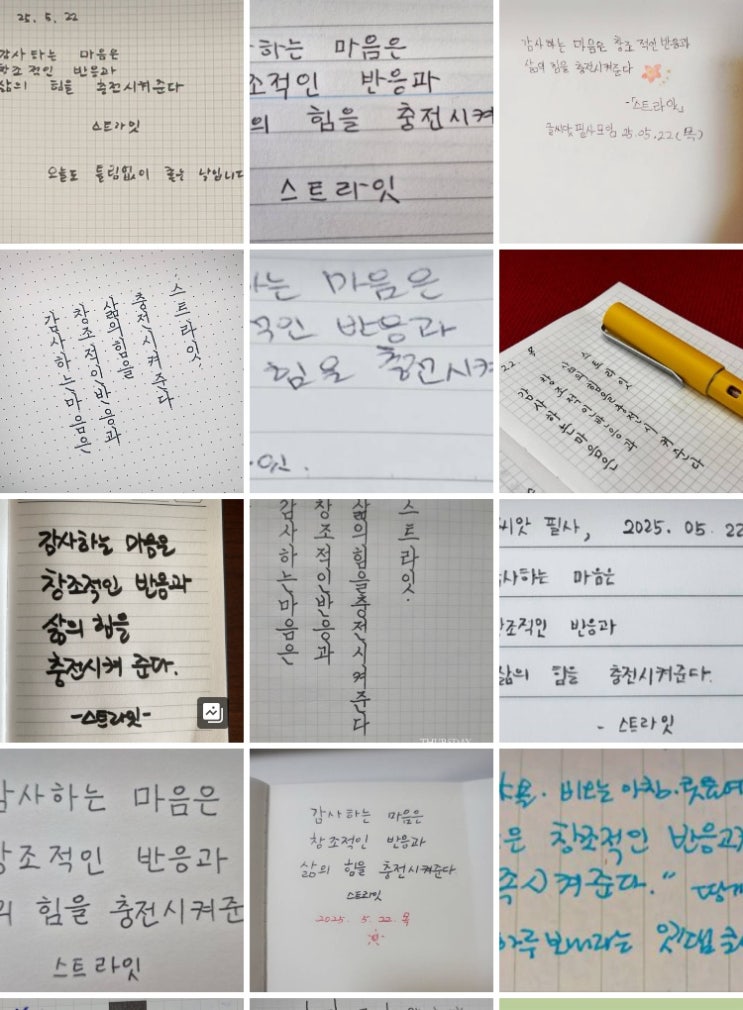 25. 5. 22
감사하는 마음은
창조적인 반응과
삶의 힘을 충전시켜준다
스트라잇
오늘도 틀림없이 좋은 날입니다
하는 마음은
조적인 반응과
의 힘을 충전시켜
스트라잇
감사하는 마음은 창조적인 반응과
삶의 힘을 충전시켜준다
-「스트라잇」
글씨앗필사모임 25.05.22(목)
스트라잇.
충전시켜준다
삶의힘을
창조적인반응과
감사하는마음은
하는 마음은
적인 반응과
힘을 충전시켜
잇.
22 목
스트라잇
삶의힘을충전시켜준다
창조적인반응과
감사하는마음은
감사하는 마음은
창조적인 반응과
삶의 힘을
충전시켜 준다.
-스트라잇-
스트라잇.
삶의힘을충전시켜준다
창조적인반응과
감사하는마음은
THURSDAY
씨앗 필사, 2025. 05. 22
사하는 마음은
조적인 반응과
삶의 힘을 충전시켜준다.
- 스트라잇
감사하는 마음은
창조적인 반응과
의 힘을 충전시켜준
스트라잇
감사하는 마음은
창조적인 반응과
삶의 힘을 충전시켜준다
스트라잇
2025. 5. 22. 목
비오는 아침.
은 창조적인 반응과
시켜준다."